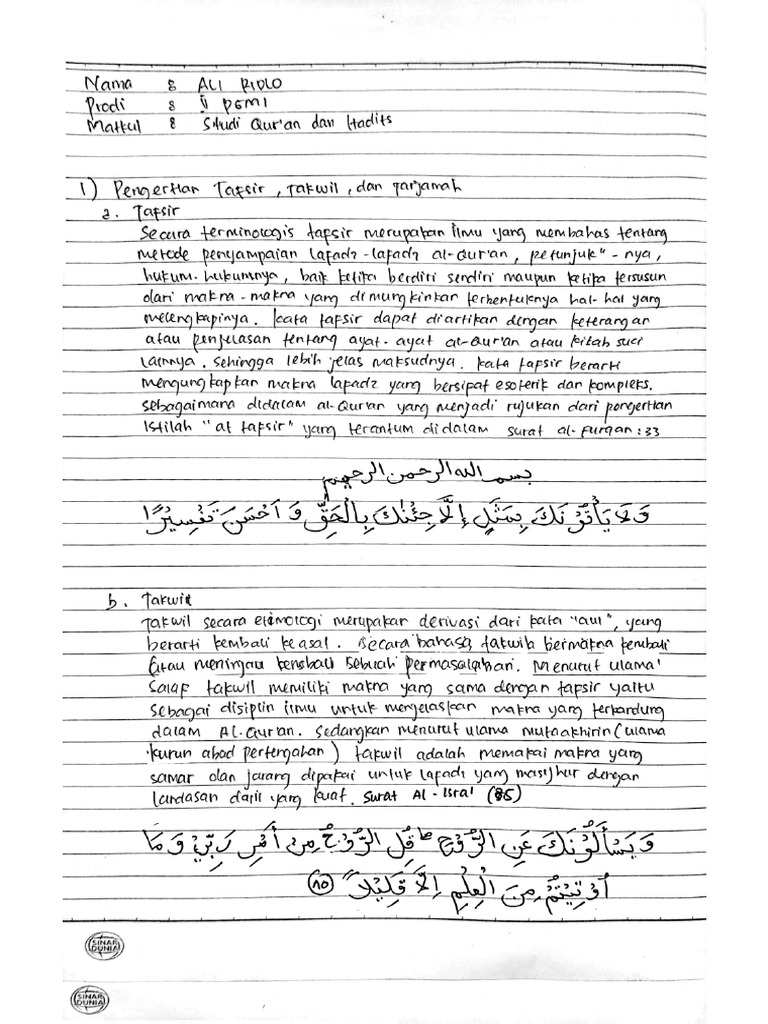 Nama : ALI RIDLO
Prodi : II PGMI
Matkul : Studi Qur'an dan Hadits
1) Pengertian Tafsir, takwil, dan tarjamah
a. Tafsir
Secara terminologis tafsir merupakan ilmu yang membahas tentang
metode penyampaian lafadz-lafadz al-Qur'an, petunjuk"-nya,
hukum-hukumnya, baik ketika berdiri sendiri maupun ketika tersusun
dari makna-makna yang dimungkinkan terbentuknya hal-hal yang
melengkapinya. kata tafsir dapat diartikan dengan keterangan
atau penjelasan tentang ayat-ayat al-Qur'an atau kitab suci
lainnya. sehingga lebih jelas maksudnya. kata tafsir berarti
mengungkapkan makna lafadz yang bersipat esoterik dan kompleks.
sebagaimana didalam al-Qur'an yang menjadi rujukan dari pengertian
istilah "at tafsir" yang terantum didalam surat al-furqan : 33
بسم الله الرحمن الرحيم
وَلَا يَأْتُوْنَكَ بِمَثَلٍ إِلَّا جِئْنٰكَ بِالْحَقِّ وَاَحْسَنَ تَفْسِيْرًا
b. Takwil
Takwil secara etimologi merupakan derivasi dari kata "aul", yang
berarti kembali ke asal. Secara bahasa takwil bermakna kembali
atau meninjau kembali sebuah permasalahan. Menurut ulama'
Salaf takwil memiliki makna yang sama dengan tafsir yaitu
sebagai disiplin ilmu untuk menjelaskan makna yang terkandung
dalam Al-Qur'an. Sedangkan menurut ulama mutaakhirin (ulama
kurun abad pertengahan) takwil adalah memakai makna yang
samar dan jarang dipakai untuk lafadz yang masyhur dengan
landasan dalil yang kuat. Surat Al-Isra' (85)
وَيَسْأَلُوْنَكَ عَنِ الرُّوْحِ ۗ قُلِ الرُّوْحُ مِنْ أَمْرِ رَبِّيْ وَمَا
اُوْتِيْتُمْ مِنَ الْعِلْمِ اِلَّا قَلِيْلًا (٨٥)
SINAR
DUNIA
SINAR
DUNIA